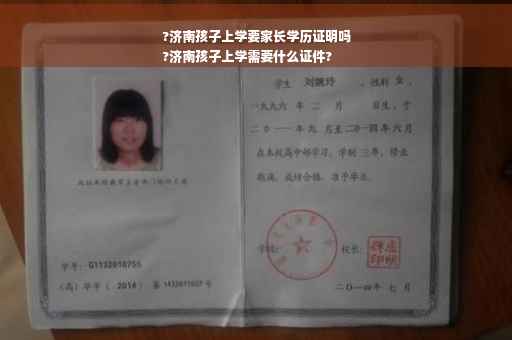 ?济南孩子上学要家长学历证明吗
?济南孩子上学需要什么证件?
学生 刘婉玲 , 性别 女 ,
一九九六 年 二 月 日生, 于
二〇一一 年 九 月至 二〇一四 年 六 月
在本校高中部学习, 学制 三 年, 修业
期满, 成绩合格, 准予毕业。
学校: 校长:
学号: G1132010755
(高) 毕字 ( 2014 ) 第 1432011027 号
二〇一四年 七 月